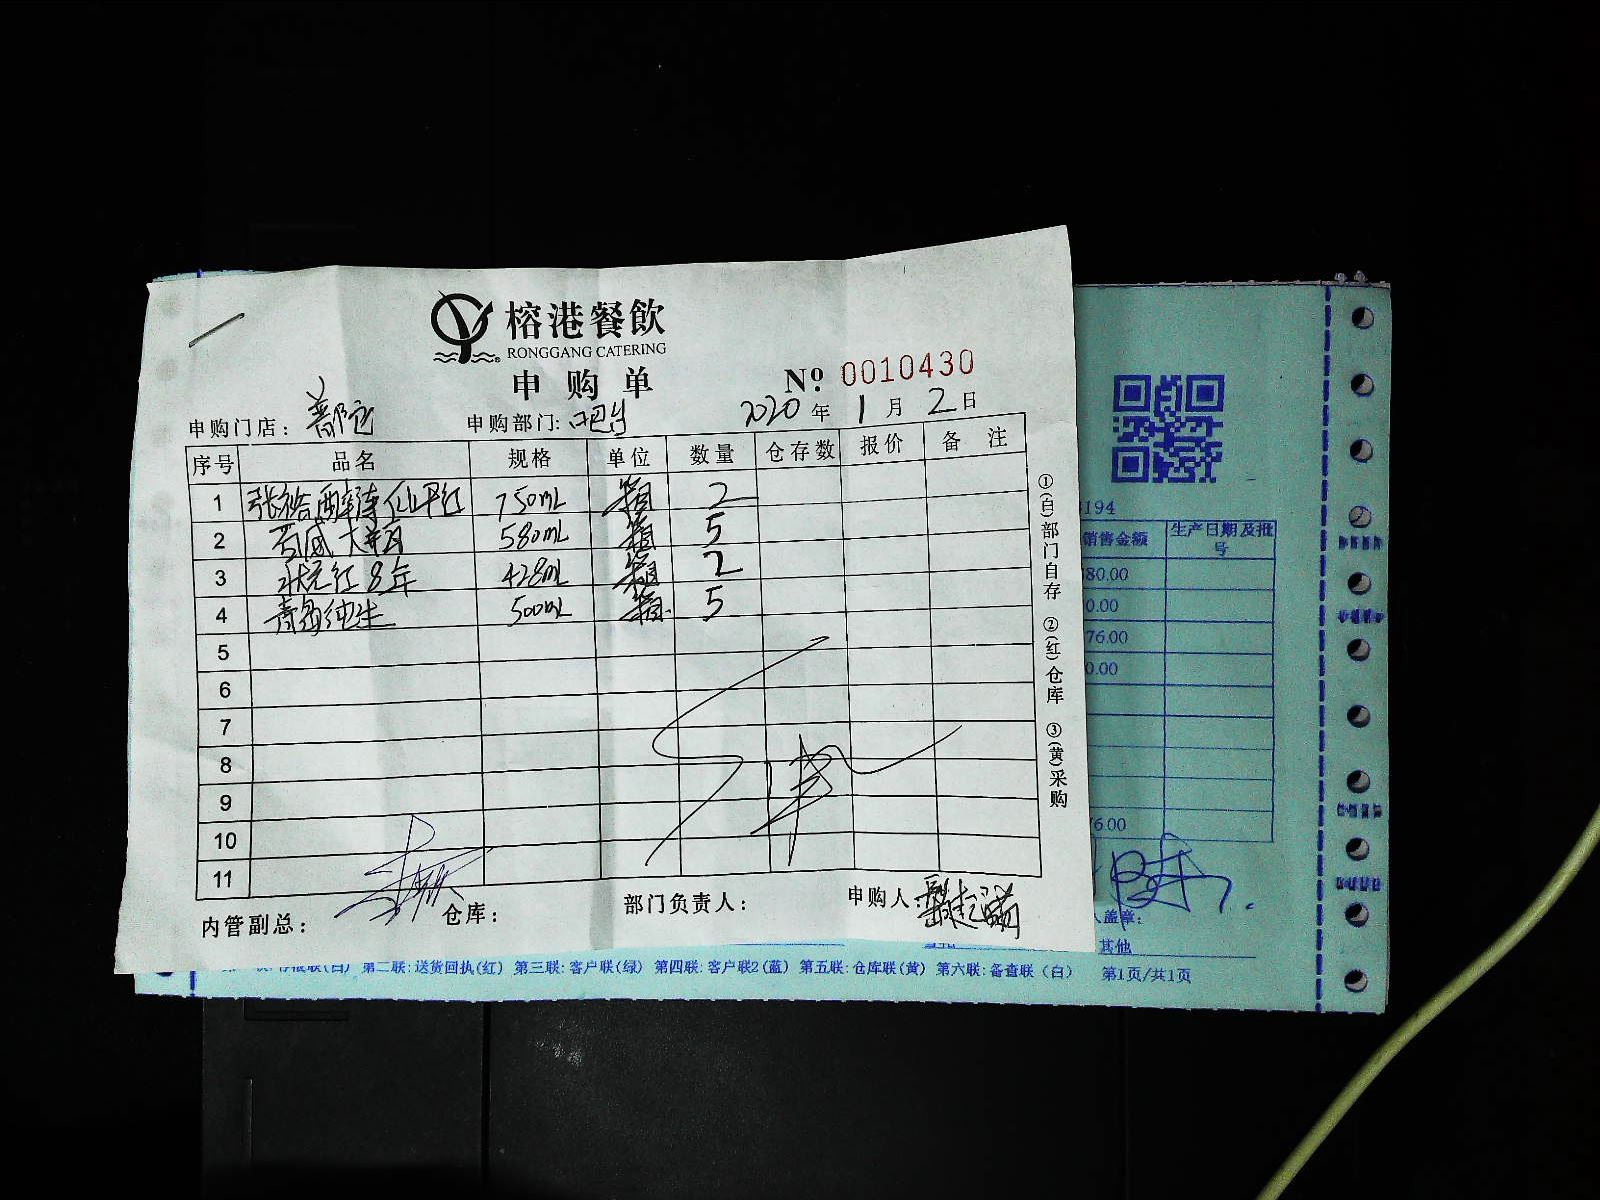 榕港餐飲
RONGGANG CATERING
申购单
Nº 0010430
申购门店: 申购部门: 吧台 2020年1月2日
序号 品名 规格 单位 数量 仓存数 报价 备注
1 张裕醉诗仙干红 750mL 箱 2
2 大瓶 580mL 箱 5
3 状元红8年 428mL 箱 2
4 青岛纯生 500mL 箱 5
5
6
7
8
9
10
11
内管副总: 仓库: 部门负责人: 申购人:
①(白)部门自存 ②(红)仓库 ③(黄)采购
194
销售金额 生产日期及批号
80.00
0.00
76.00
0.00
76.00
盖章:
其他
第二联:送货回执(红) 第三联:客户联(绿) 第四联:客户联2(蓝) 第五联:仓库联(黄) 第六联:备查联(白) 第1页/共1页